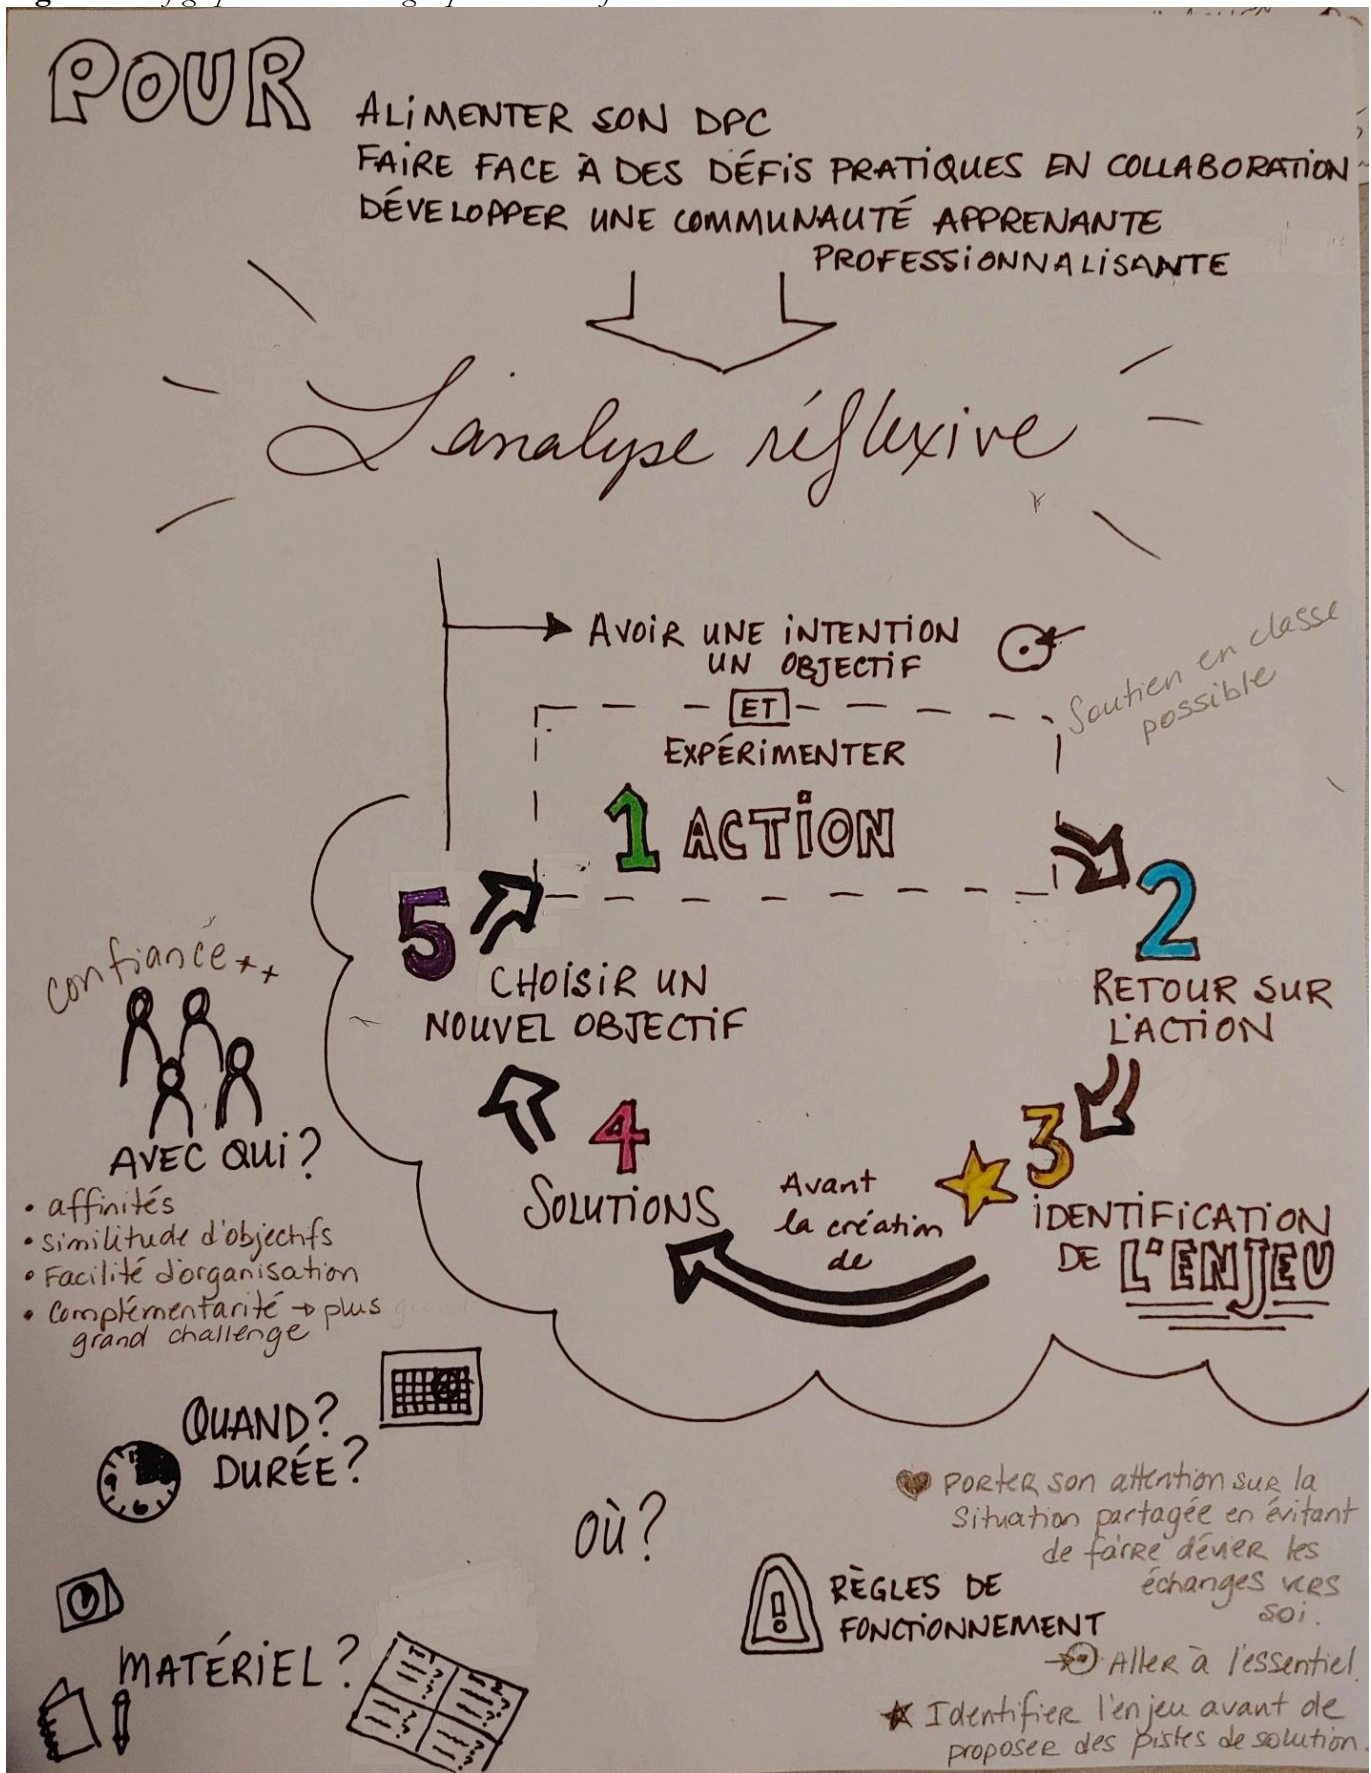 POUR
ALIMENTER SON DPC
FAIRE FACE À DES DÉFIS PRATIQUES EN COLLABORATION
DÉVELOPPER UNE COMMUNAUTÉ APPRENANTE
PROFESSIONNALISANTE
L'analyse réflexive
AVOIR UNE INTENTION
UN OBJECTIF
Soutien en classe
possible
ET
EXPÉRIMENTER
1 ACTION
2
RETOUR SUR
L'ACTION
3
IDENTIFICATION
DE L'ENJEU
Avant
la création
de
4
SOLUTIONS
5
CHOISIR UN
NOUVEL OBJECTIF
confiance ++
AVEC QUI?
• affinités
• similitude d'objectifs
• Facilité d'organisation
• Complémentarité → plus
grand challenge
QUAND?
DURÉE?
OÙ?
MATÉRIEL?
RÈGLES DE
FONCTIONNEMENT
PORTER son attention sur la
situation partagée en évitant
de faire dévier les
échanges vers
soi.
Aller à l'essentiel.
Identifier l'enjeu avant de
proposer des pistes de solution.